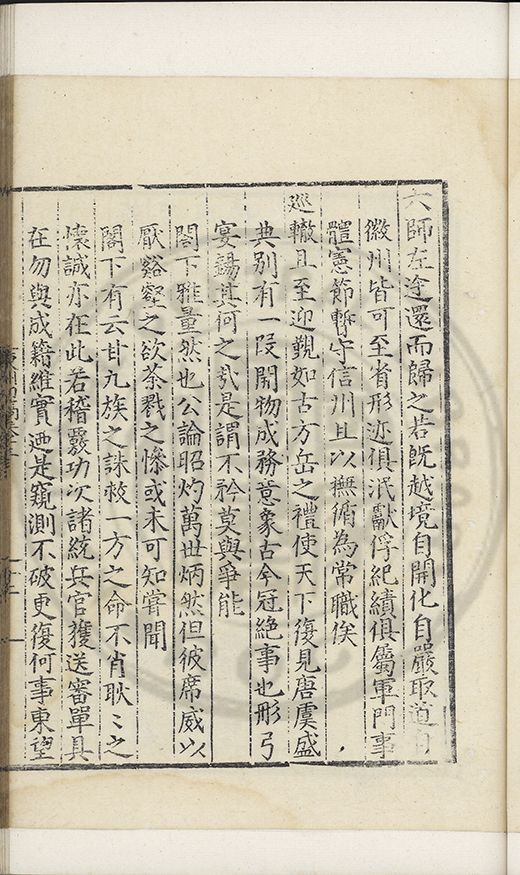 六師左途還而歸之若旣越境自開化自嚴取道自
徽州皆可至省形迹俱泯獻俘紀績俱屬軍門事
體憲節暫守信州且以撫循為常職俟
巡轍且至迎覲如古方岳之禮使天下復見唐虞盛
典別有一段開物成務意象古今冠絶事也彤弓
宴錫其何之㢤是謂不矜莫與爭能
閤下雅量然也公論昭灼萬世炳然但彼席威以
厭谿壑之欲荼戮之慘或未可知嘗聞
閤下有云甘九族之誅救一方之命不肖耿〻之
懷誠亦在此若稽覈功次諸統兵官獲送審單具
在勿與成籍維實迺是窺測不破更復何事東望